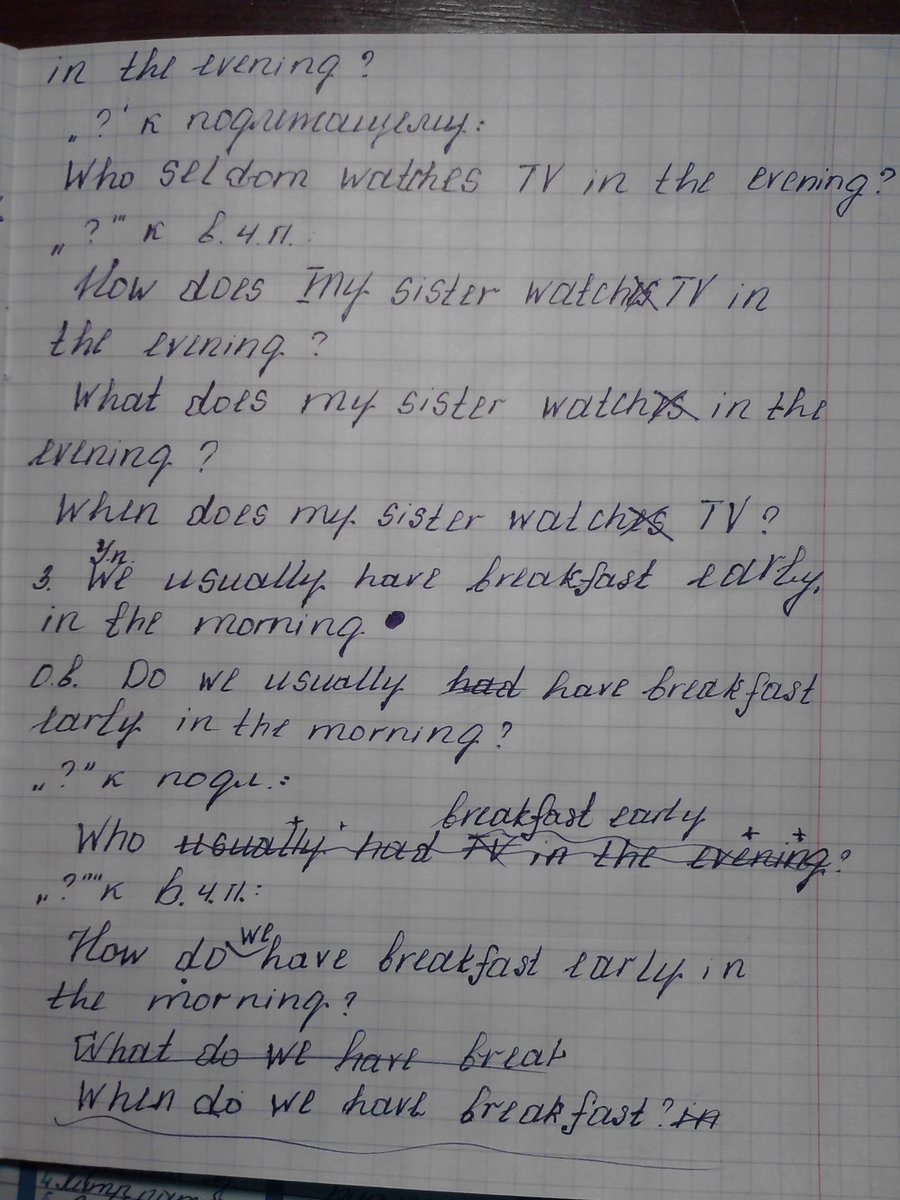 in the evening?
„?" к подлежащему:
Who seldom watches TV in the evening?
„?" к в.ч.п.
How does my sister watch TV in
the evening?
What does my sister watch in the
evening?
When does my sister watch TV?
3. We usually have breakfast early
in the morning.
О.в. Do we usually had have breakfast
early in the morning?
„?" к подл.:
breakfast early
Who usually had TV in the evening?
„?" к в.ч.п.:
How do we have breakfast early in
the morning?
What do we have break
When do we have breakfast? in